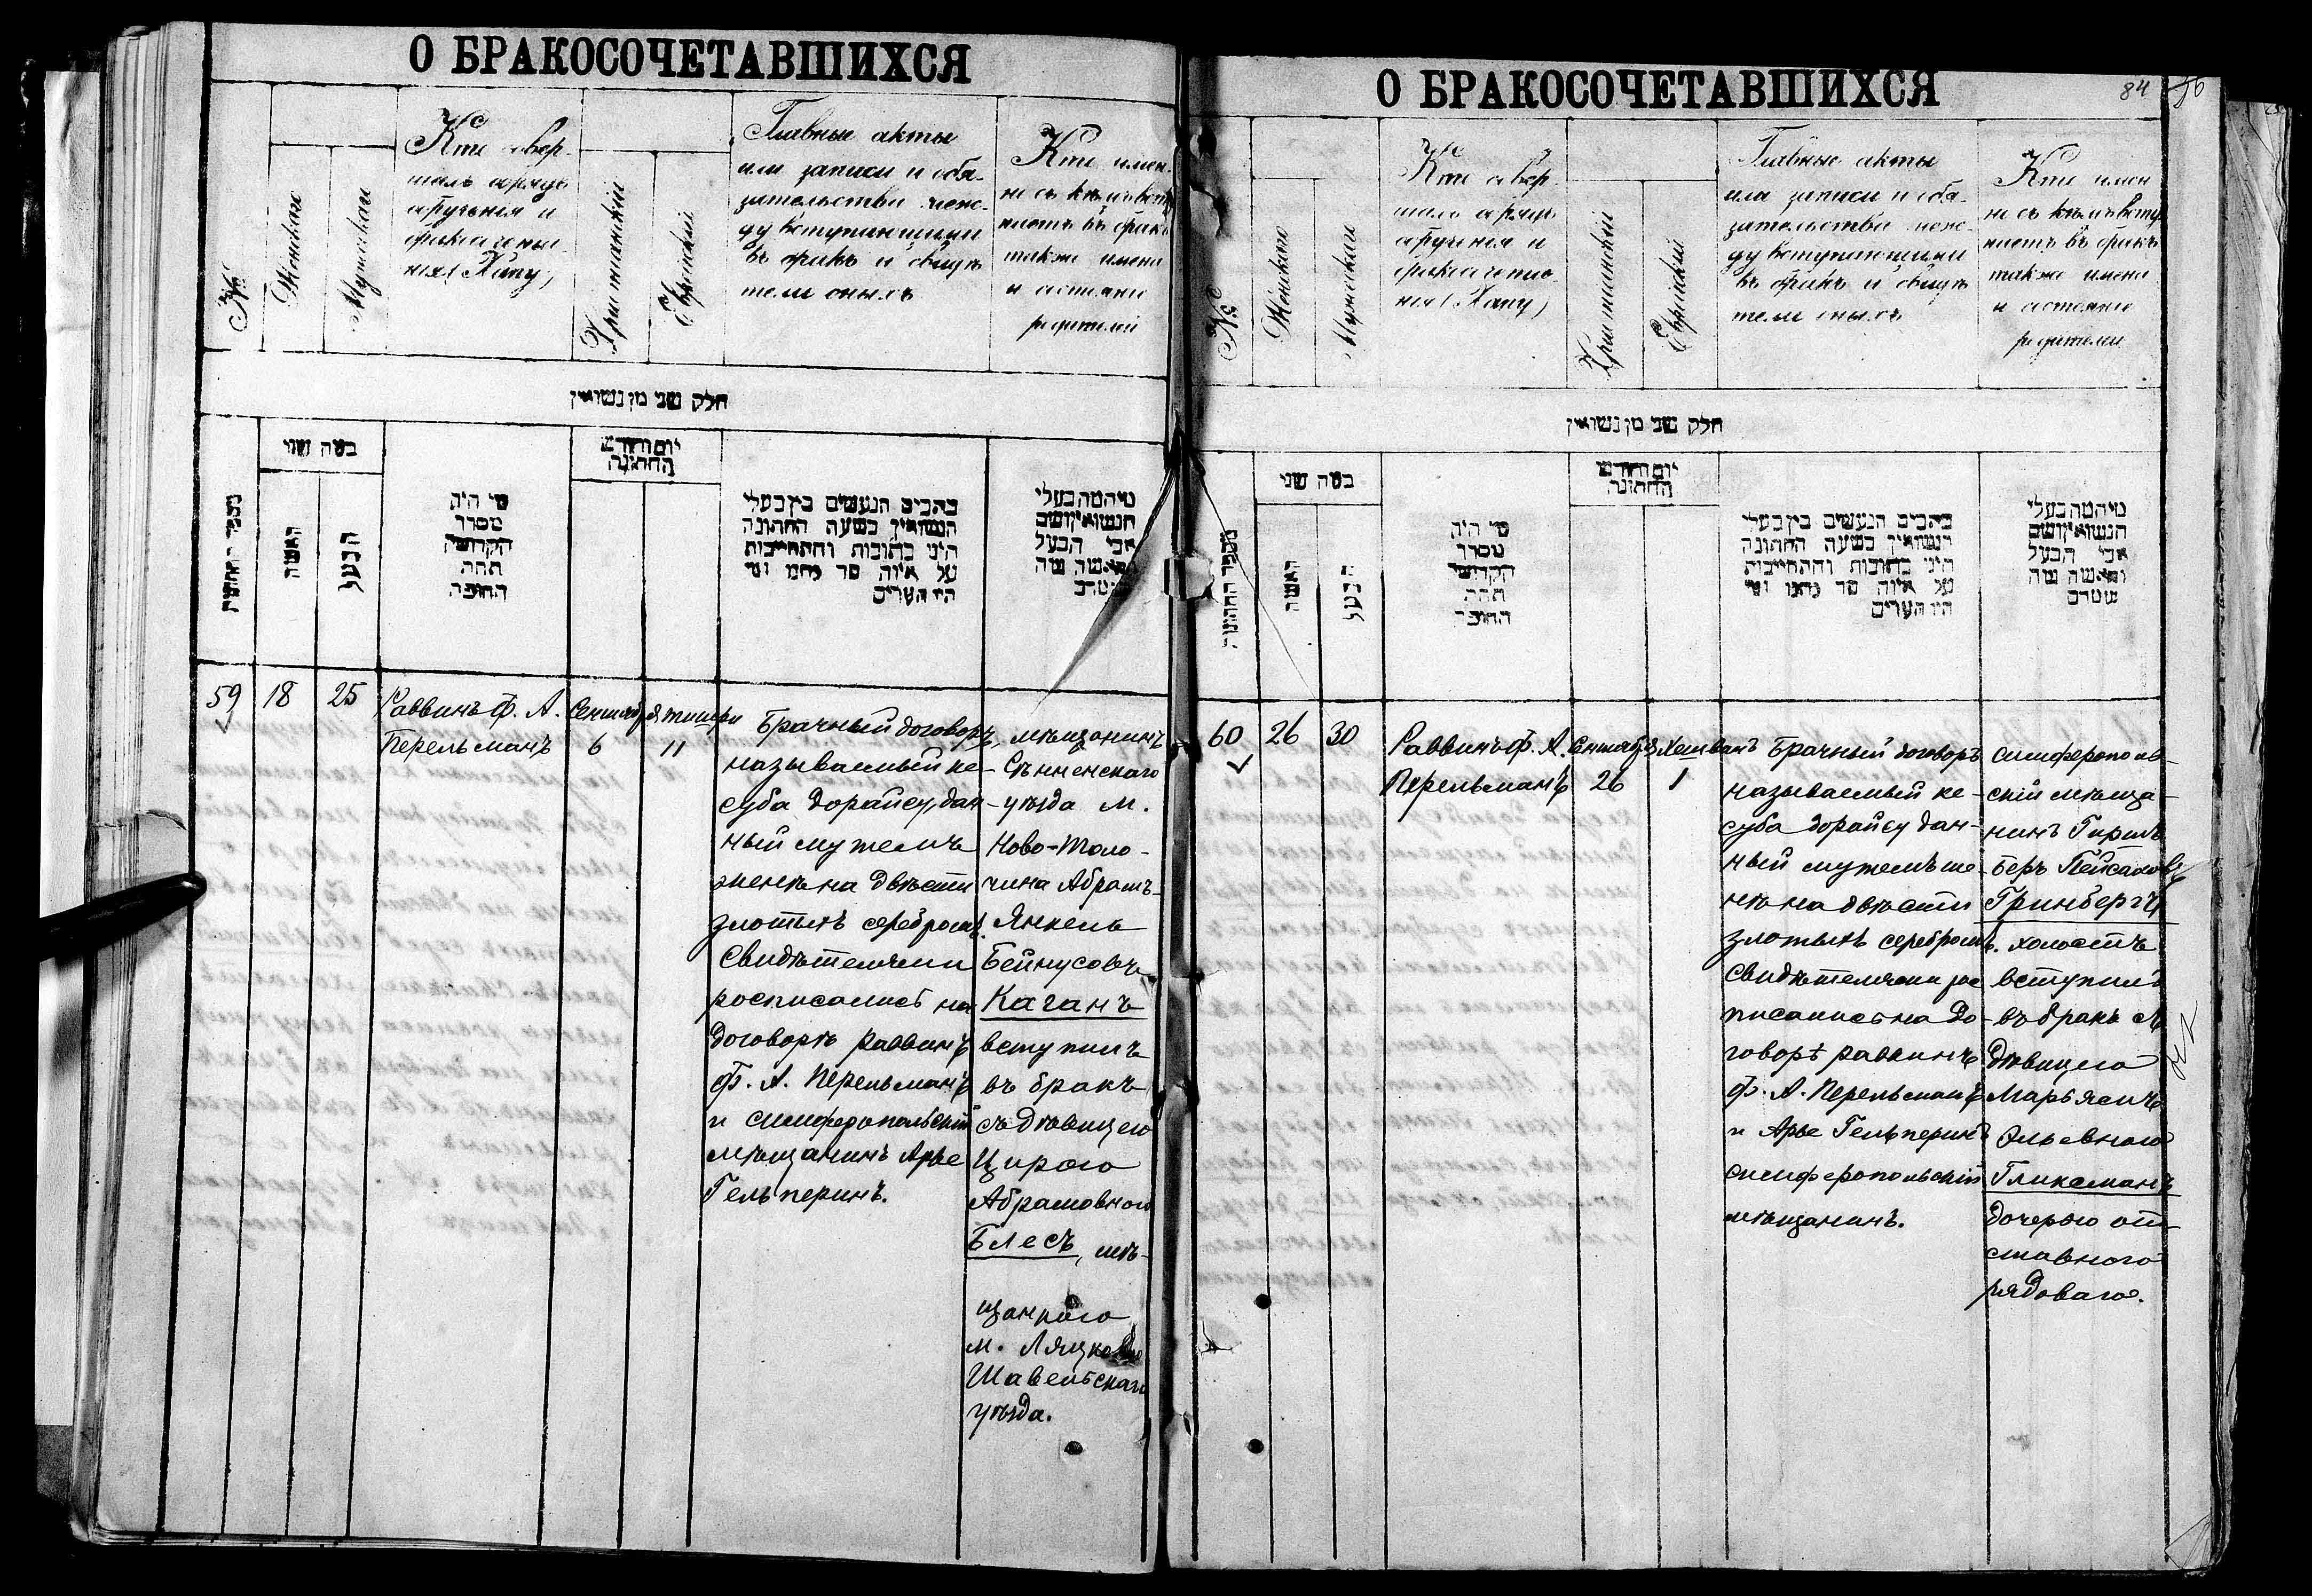 О БРАКОСОЧЕТАВШИХСЯ
№
Женскаго
Мужскаго
Кто совер-
шалъ обрядъ
обрученія и
бракосочета-
нія (Хапу)
Христіанскій
Еврейскій
Главные акты
или записи и обя-
зательства меж-
ду вступившими
въ бракъ и свидѣ
тели оныхъ
Кто имен-
но съ кѣмъ всту
паетъ въ бракъ
также имена
и состояніе
родителей
חלק שני מן נשואין
מספר החתונות
כמה שני
האשה
הבעל
מי היה
מסדר
הקדושין
תחת
החופה
יום וחודש
החתונה
כתבים הנעשים בין בעלי
הנשואין בשעת החתונה
היינו כתובות והתחייבות
על איזה סך נתנו ומי
היו העדים
מיהמה בעלי
הנשואין ושם
אבי הבעל
והאשה ומה
מעמדם
59
18
25
Раввинъ Ф. А.
Перельманъ
Сентября
6
Тишри
11
Брачный договоръ,
называемый ке-
суба дорайсу, дан-
ный мужемъ
женѣ на двѣсти
злотыхъ серебромъ.
Свидѣтелями
росписались на
договорѣ раввинъ
Ф. А. Перельманъ
и симферопольскій
мѣщанинъ Арье
Гельперинъ.
мѣщанинъ
Сѣнненскаго
уѣзда м.
Ново-Толо-
чина Абрамъ-
Янкель
Бейнусовъ
Каганъ
вступилъ
въ бракъ
съ дѣвицею
Цирою
Абрамовною
Блесъ, мѣ-
щанкою
м. Ляцково
Шавельскаго
уѣзда.
О БРАКОСОЧЕТАВШИХСЯ
84
56
№
Женскаго
Мужескаго
Кто совер-
шалъ обрядъ
обрученія и
бракосочета-
нія (Хапу)
Христіанскій
Еврейскій
Главные акты
или записи и обя-
зательства меж-
ду вступившими
въ бракъ и свидѣ
тели оныхъ
Кто имен
но съ кѣмъ всту
паетъ въ бракъ
также имена
и состояніе
родителей
חלק שני מן נשואין
מספר החתונות
כמה שני
האשה
הבעל
מי היה
מסדר
הקדושין
תחת
החופה
יום וחודש
החתונה
כתבים הנעשים בין בעלי
הנשואין בשעת החתונה
היינו כתובות והתחייבות
על איזה סך נתנו ומי
היו העדים
מיהמה בעלי
הנשואין ושם
אבי הבעל
והאשה ומה
מעמדם
60
26
30
Раввинъ Ф. А.
Перельманъ
Сентября
26
Хешванъ
1
Брачный договоръ
называемый ке-
суба дорайсу дан-
ный мужемъ же-
нѣ на двѣсти
злотыхъ серебромъ.
свидѣтелями рос
писались на до-
говорѣ раввинъ
Ф. А. Перельманъ
и Арье Гельперинъ
симферопольскій
мѣщанинъ.
симферополь-
скій мѣща-
нинъ Гиршъ
Беръ Пейсаховъ
Гринбергъ
холостъ
вступилъ
въ бракъ съ
дѣвицею
Марьясъ
Эльевною
Гликсманъ
дочерью от-
ставного
рядоваго.